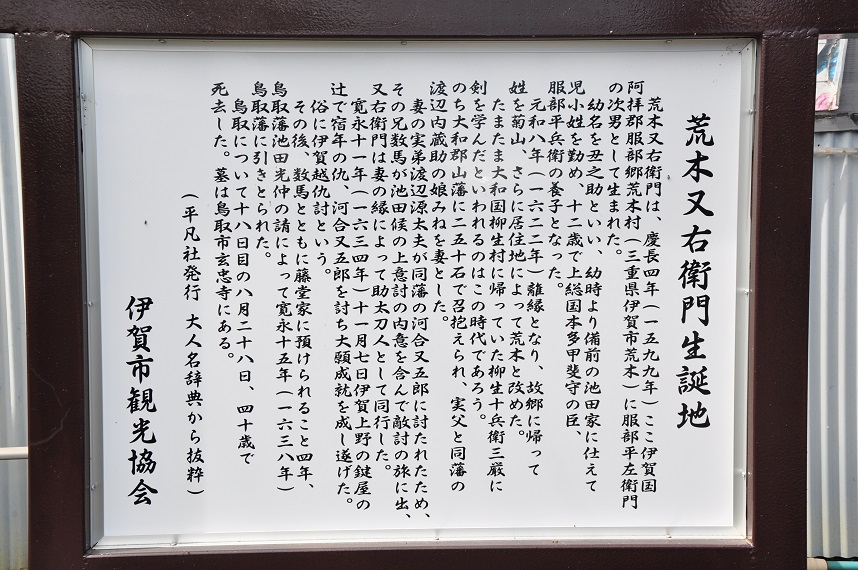 荒木又右衛門生誕地
荒木又右衛門は、慶長四年(一五九九年)ここ伊賀国
阿拝郡服部郷荒木村(三重県伊賀市荒木)に服部平左衛門
の次男として生まれた。
幼名を丑之助といい、幼時より備前の池田家に仕えて
児小姓を勤め、十二歳で上総国本多甲斐守の臣、
服部平兵衛の養子となった。
元和八年(一六二二年)離縁となり、故郷に帰って
姓を菊山、さらに居住地によって荒木と改めた。
たまたま大和国柳生村に帰っていた柳生十兵衛三厳に
剣を学んだといわれるのはこの時代であろう。
のち大和郡山藩に二五十石で召抱えられ、実父と同藩の
渡辺内蔵助の娘みねを妻とした。
妻の実弟渡辺源太夫が同藩の河合又五郎に討たれたため、
その兄数馬が池田候の上意討の内意を含んで敵討の旅に出、
又右衛門は妻の縁によって助太刀人として同行した。
寛永十一年(一六三四年)十一月七日伊賀上野の鍵屋の
辻で宿年の仇、河合又五郎を討ち大願成就を成し遂げた。
俗に伊賀越仇討という。
その後、数馬とともに藤堂家に預けられること四年、
鳥取藩池田光仲の請によって寛永十五年(一六三八年)
鳥取藩に引きとられた。
鳥取について十八日目の八月二十八日、四十歳で
死去した。墓は鳥取市玄忠寺にある。
(平凡社発行 大人名辞典から抜粋)
伊賀市観光協会